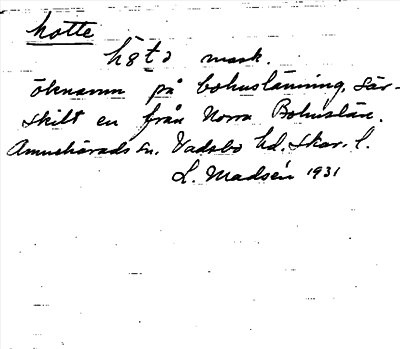 hotte
mask.
öknamn på bohuslänning, sär-
skilt en från Norra Bohuslän.
Amnehärads sn. Vadsbo hd. Skar. l.
L. Madsén 1931